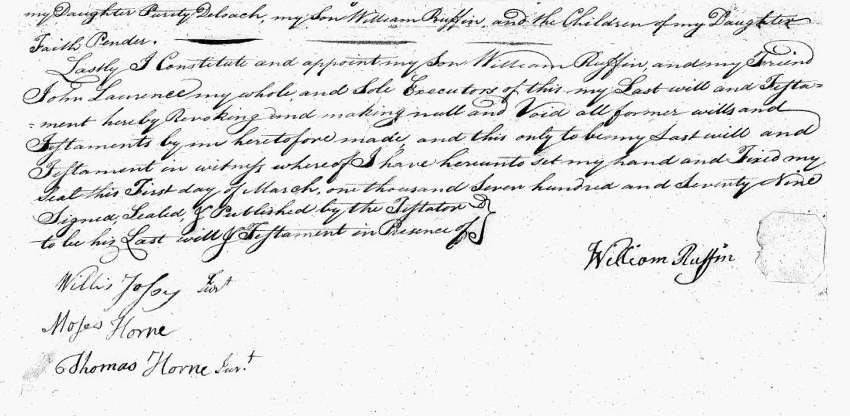 my Daughter Purity Deloach, my Son William Ruffin, and the Children of my Daughter
Faith Pender.
Lastly I Constitute and appoint my Son William Ruffin, and my Friend
John Laurence my whole, and Sole Executors of this my Last will and Testa-
-ment hereby Revoking and making null and Void all former wills and
Testaments by me heretofore made, and this only to be my Last will and
Testament in witness whereof I have hereunto set my hand and Fixed my
Seal this First day of March, one thousand Seven hundred and Seventy Nine
Signed, Sealed, & Published by the Testator
to be his Last will & Testament in Presence of
William Ruffin
Willis Josey Jurt
Moses Horne
Thomas Horne Jurt